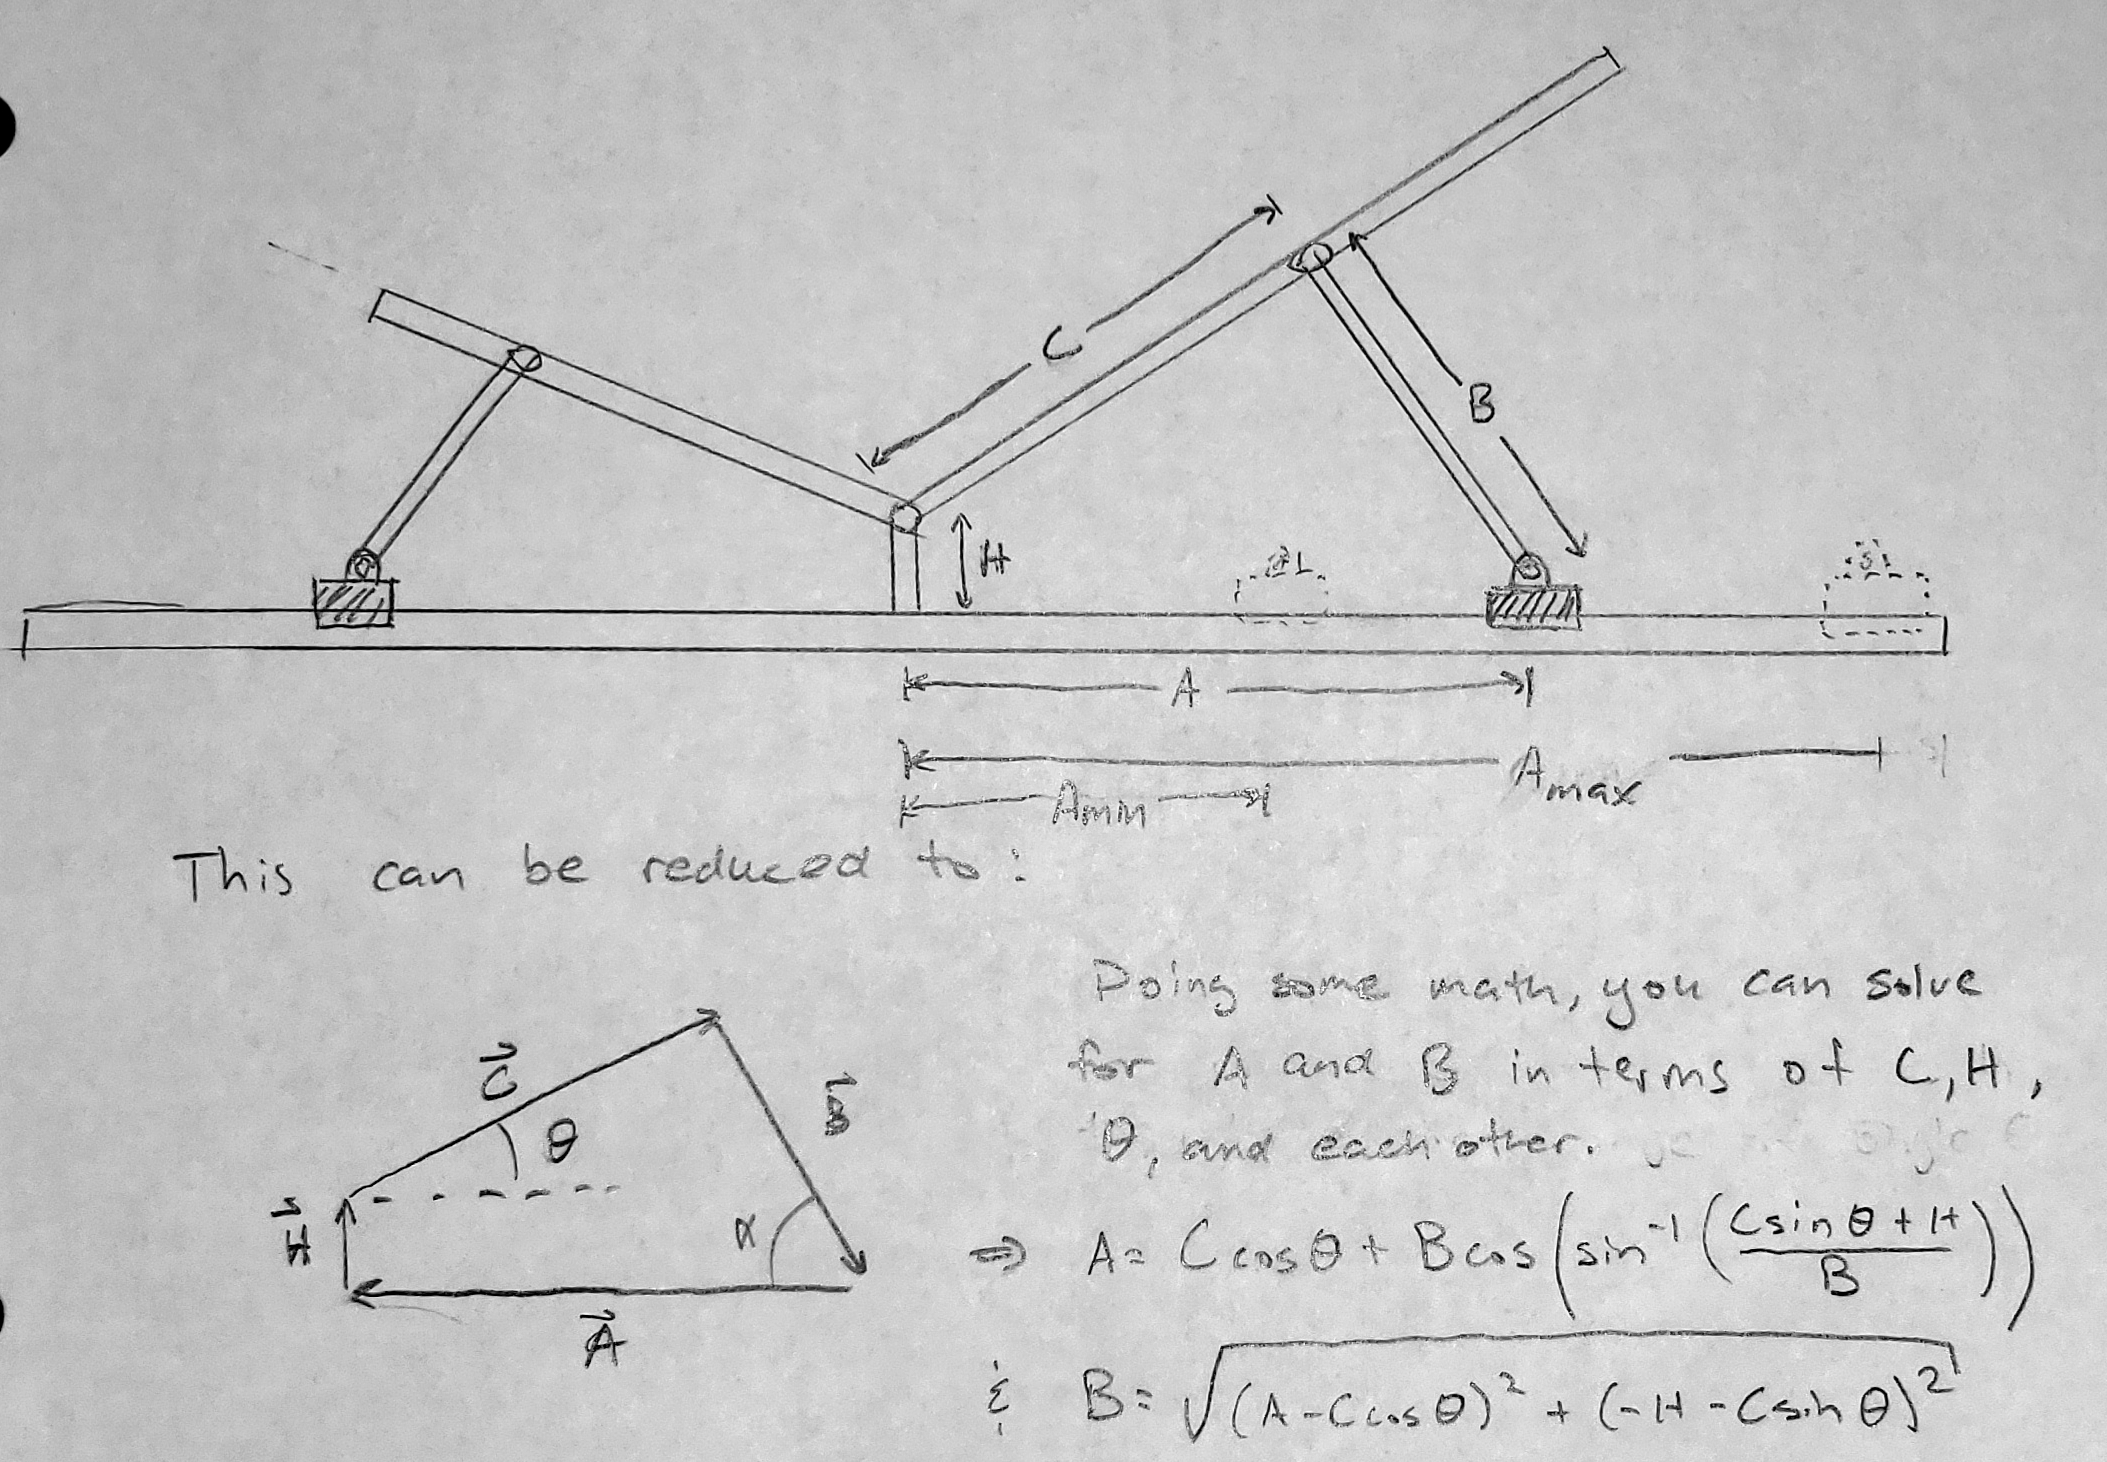 C
B
H
A
Amax
Amin
This can be reduced to:
C⃗
θ
B⃗
H⃗
α
A⃗
Doing some math, you can solve
for A and B in terms of C, H,
θ, and each other.
⇒ A= C cosθ + B cos(sin⁻¹((C sinθ + H)/B))
& B= √((A-C cosθ)² + (-H-C sinθ)²)